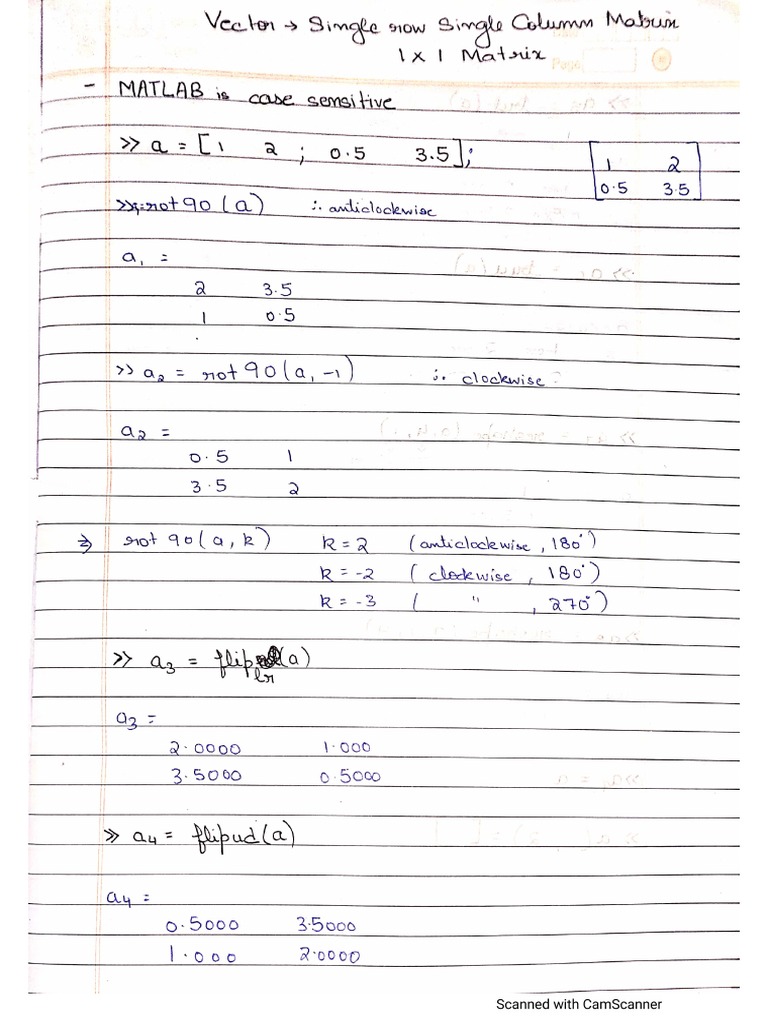 Vector → Single row Single Column Matrix
1 x 1 Matrix
- MATLAB is case sensitive
>> a = [1 2 ; 0.5 3.5];
1 2
0.5 3.5
>> rot 90 (a) ∴ anticlockwise
a₁ =
2 3.5
1 0.5
>> a₂ = rot 90 (a, -1) ∴ clockwise
a₂ =
0.5 1
3.5 2
⇒ rot 90 (a, k) k = 2 (anticlockwise, 180°)
k = -2 ( clockwise , 180°)
k = -3 ( " , 270°)
>> a₃ = flip (a)
lr
a₃ =
2.0000 1.000
3.5000 0.5000
>> a₄ = flipud (a)
a₄ =
0.5000 3.5000
1.000 2.0000
Scanned with CamScanner